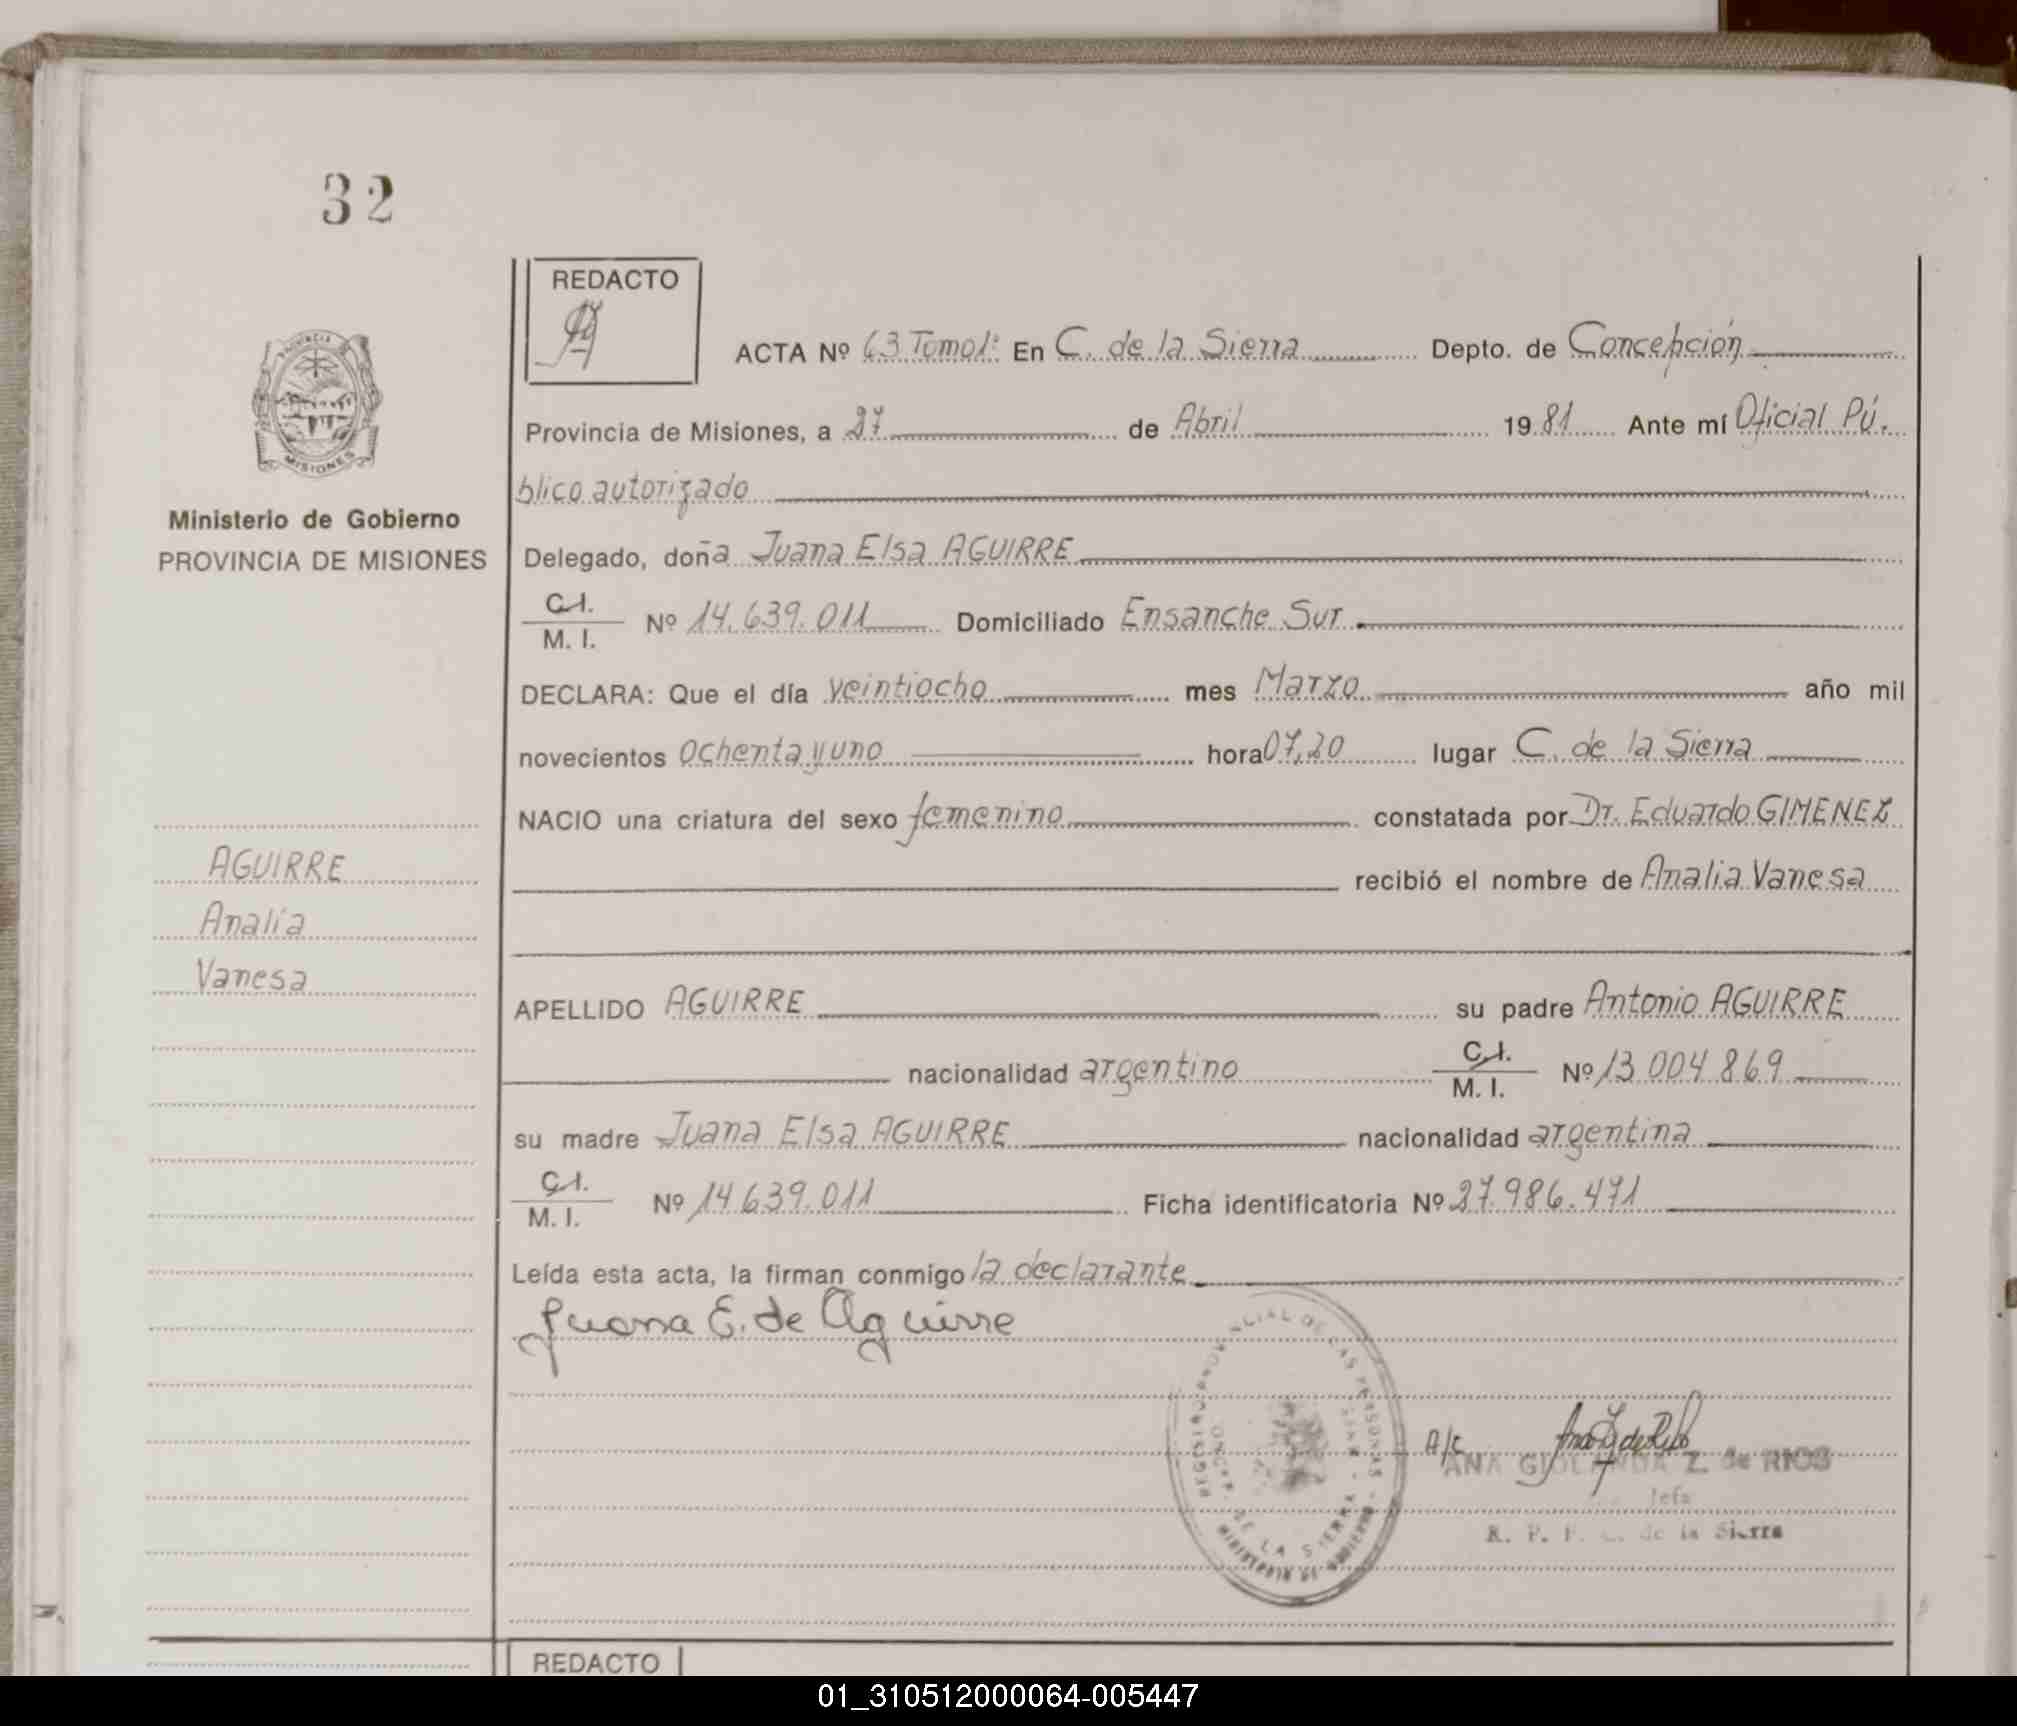 32
REDACTO
ACTA Nº 63 Tomo 1º En C. de la Sierra Depto. de Concepción
Provincia de Misiones, a 27 de Abril 1981 Ante mí Oficial Pú.
blico autorizado
Ministerio de Gobierno
PROVINCIA DE MISIONES
Delegado, doña Juana Elsa AGUIRRE
C.I.
M. I. Nº 14.639.011 Domiciliado Ensanche Sur
DECLARA: Que el día veintiocho mes Marzo año mil
novecientos ochenta y uno hora 07,20 lugar C. de la Sierra
NACIO una criatura del sexo femenino constatada por Dr. Eduardo GIMENEZ
recibió el nombre de Analia Vanesa
AGUIRRE
Analía
Vanesa
APELLIDO AGUIRRE su padre Antonio AGUIRRE
nacionalidad argentino C.I.
M. I. Nº 13.004.869
su madre Juana Elsa AGUIRRE nacionalidad argentina
C.I.
M. I. Nº 14.639.011 Ficha identificatoria Nº 27.986.471
Leída esta acta, la firman conmigo la declarante
Juana E. de Aguirre
REGISTRO PROVINCIAL DE LAS PERSONAS
DE LA SIERRA
A/c
ANA Z. de RIOS
Jefa
R. P. P. C. de la Sierra
REDACTO
01_310512000064-005447